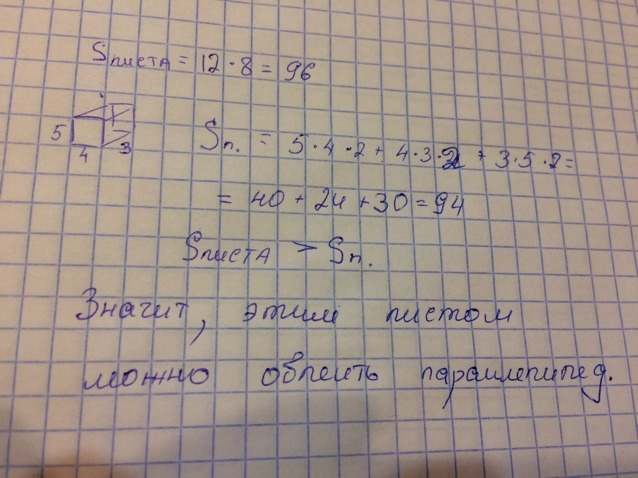 Sлиста = 12 · 8 = 96
5
4
3
Sп. = 5 · 4 · 2 + 4 · 3 · 2 + 3 · 5 · 2 =
= 40 + 24 + 30 = 94
Sлиста > Sп.
Значит, этим листом
можно обклеить параллепипед.